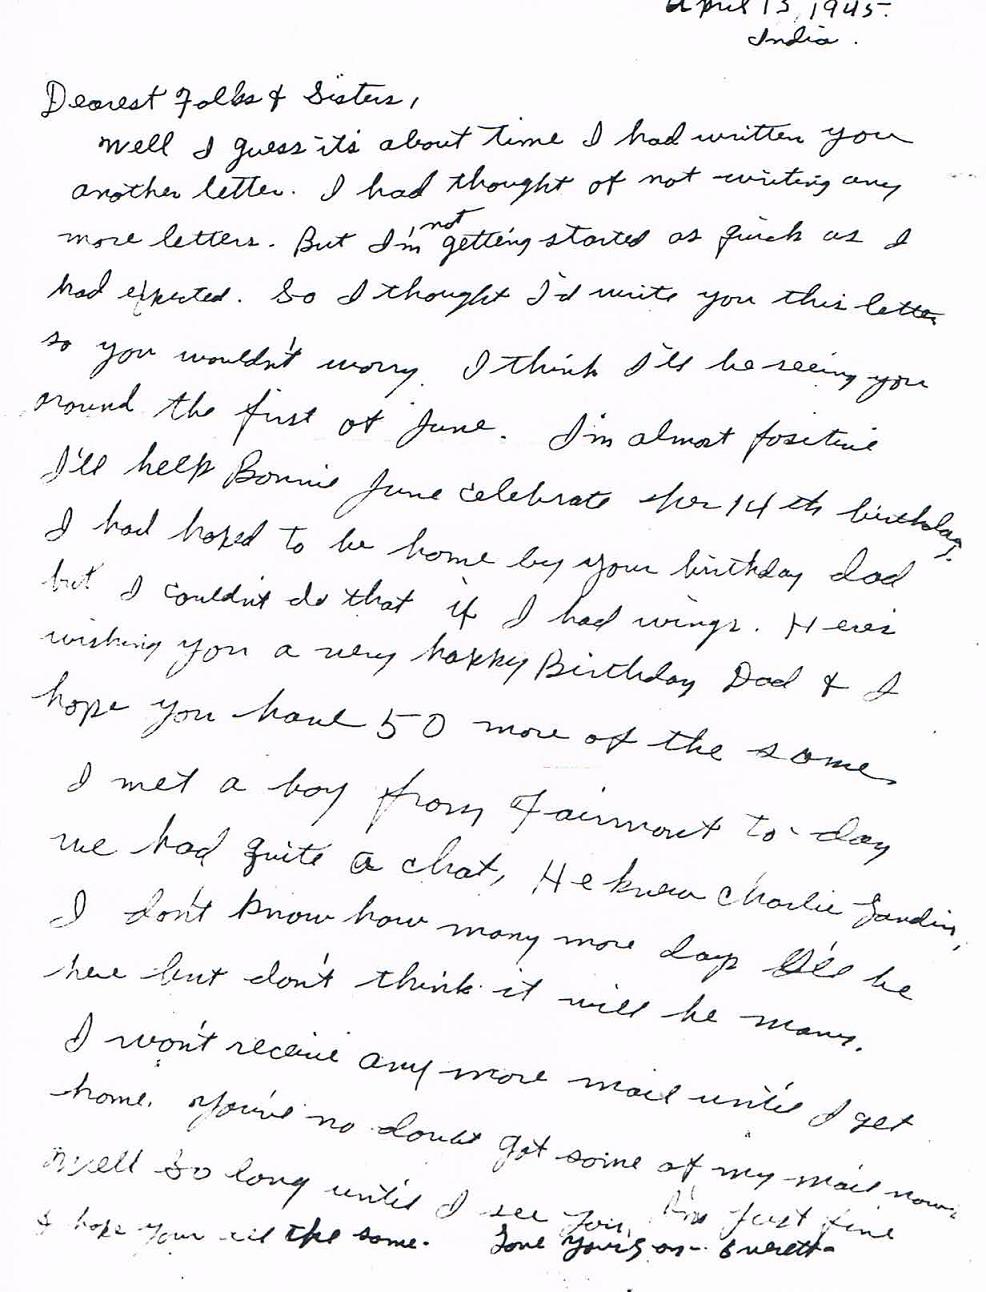 April 13, 1945.
India.
Dearest Folks & Sisters,
Well I guess it's about time I had written you
another letter. I had thought of not writing any
more letters. But I'm not getting started as quick as I
had expected. So I thought I'd write you this letter
so you wouldn't worry. I think I'll be seeing you
around the first of June. I'm almost positive
I'll help Bonnie June celebrate her 14th birthday.
I had hoped to be home by your birthday dad
but I couldn't do that if I had wings. Here's
wishing you a very happy Birthday Dad & I
hope you have 50 more of the same.
I met a boy from Fairmont to-day
we had quite a chat, He knew Charlie
I don't know how many more days I'll be
here but don't think it will be many.
I won't receive any more mail until I get
home. You've no doubt got some of my mail now.
Well So long until I see you, I'm just fine
& hope your all the same. Love Your Son - Everett-